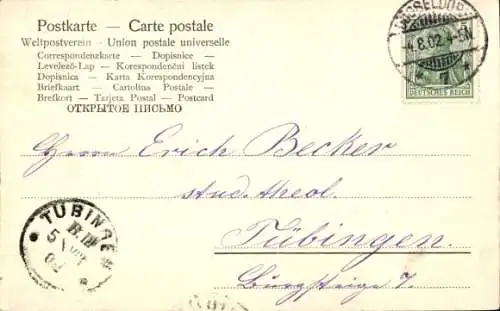 Postkarte — Carte postale
Weltpostverein - Union postale universelle
Correspondenzkarte — Dopisnice —
Levelező-Lap — Korespondenční listek
Dopisnica — Karta Korespondencyjna
Briefkaart — Cartolina Postale —
Brefkort — Tarjeta Postal — Postcard
ОТКРЫТОЕ ПИСЬМО
DÜSSELDORF
4.8.02. 4-5N
7
DEUTSCHES REICH
Herrn Erich Becker
stud. theol.
Tübingen.
Burgsteige 7.
TÜBINGEN
5
02